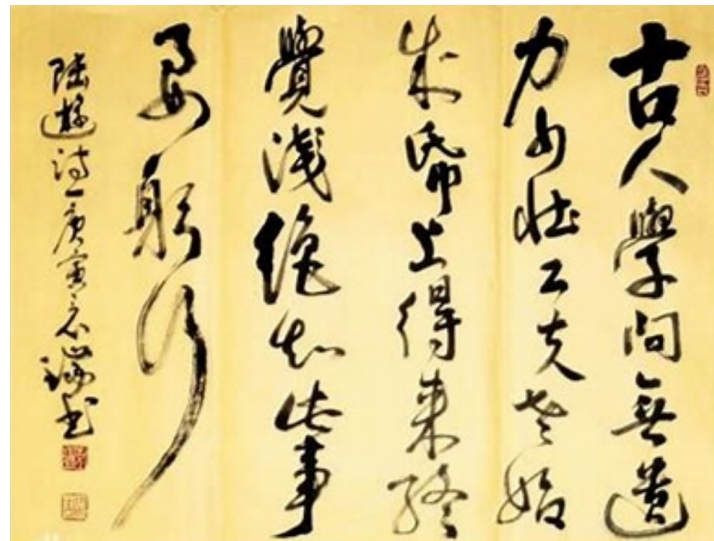 古人學問無遺
力少壯工夫老始
成帋上得來終
覺淺絕知此事
要躬行
陸遊詩一庚寅書